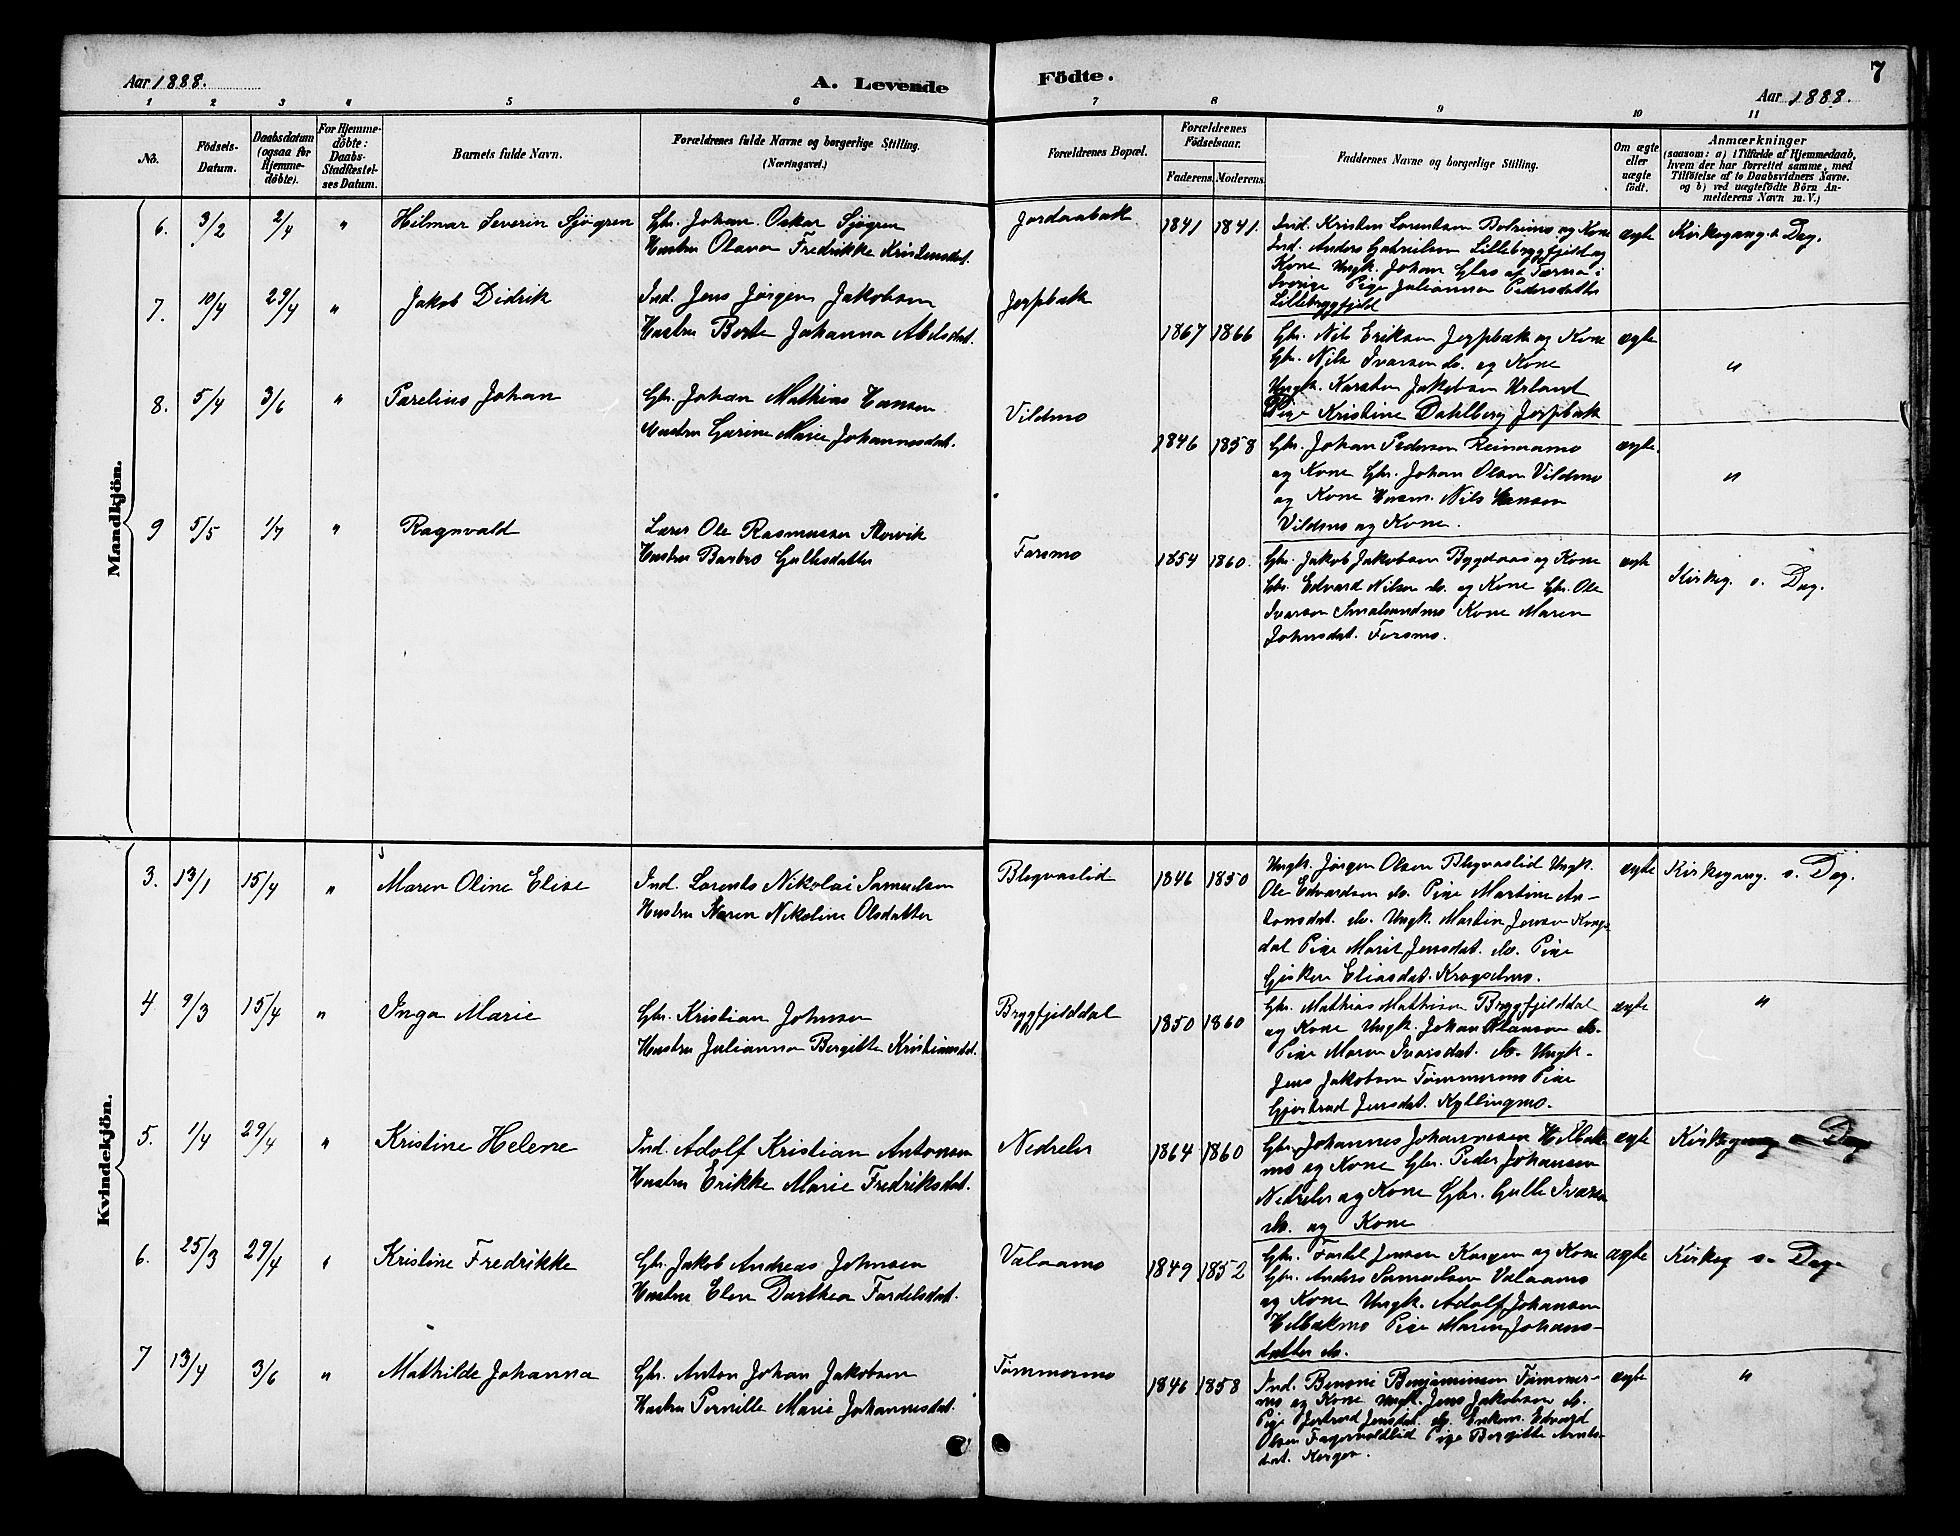 Aar 1888.
A. Levende
Födte.
7
Aar 1888.
1 2 3 4 5 6 7 8 9 10 11
No.
Födsels-
Datum.
Daabsdatum
(ogsaa for
Hjemme-
döbte).
For Hjemme-
döbte:
Daabs-
Stadfæstel-
ses Datum.
Barnets fulde Navn.
Forældrenes fulde Navne og borgerlige Stilling.
(Næringsvei.)
Forældrenes Bopæl.
Forældrenes
Födselsaar.
Faderens. Moderens.
Faddernes Navne og borgerlige Stilling.
Om ægte
eller
uægte
födt.
Anmærkninger
(saasom: a) i Tilfælde af Hjemmedaab,
hvem der har forrettet samme, med
Tilföielse af to Daabsvidners Navne.
og b) ved uægtefödte Börn An-
melderens Navn m. V.)
Mandkjön.
6. 3/2 2/4 " Hilmar Severin Sjøgren
Gbr. Johan Oskar Sjøgren
Hustru Olava Fredrikke Kristensdat.
Jordaabæk
1841 1841.
Ind. Kristen Lorentsen og Kone
Ind. Anders Gabrielsen Lillebryggfjeld og
Kone Ungk. Johan af Tærna i
Sverige Pige Julianna Pedersdatter
Lillebryggfjeld
ægte
Kirkegang s. Dag.
7. 10/4 29/4 " Jakob Didrik
Ind. Jens Jørgen Jakobsen
Hustru Berte Johanna Abelsdat.
Jerpbæk
1867 1866
Gbr. Nils Eriksen Jerpbæk og Kone
Gbr. Nils Ivarsen do. og Kone
Ungk. Karsten Jakobsen
Pige Kristine Dahlberg Jerpbæk
ægte
"
8. 5/4 3/6 " Parelius Johan
Gbr. Johan Mathias Hansen
Hustru Marie Johannesdat.
Vildmo
1846 1858
Gbr. Johan Pedersen
og Kone Gbr. Johan Olsen Vildmo
og Kone Husm. Nils Hansen
Vildmo og Kone.
ægte.
"
9 5/5 1/7 " Ragnvald
Lærer Ole Rasmussen Storvik
Hustru Barbro Gullesdatter
Forsmo
1854 1860.
Gbr. Jakob Jakobsen Bygdaas og Kone
Gbr. Edvard Nilsen do. og Kone Gbr. Ole
Ivarsen Smalsundmo Kone Maren
Johnsdat. Forsmo.
ægte
Kirkeg. s. Dag.
Kvindekjön.
3. 13/1 15/4 " Maren Oline Elise
Ind. Lorents Nikolai Samuelsen
Hustru Karen Nikoline Olsdatter
Blegvaslid
1846 1850
Ungk. Jørgen Olsen Blegvaslid Ungk.
Ole Edvardsen do. Pige Martine An-
tonsdat. do. Ungk. Martin Jensen Kongs-
dal Pige Marit Jensdat. do. Pige
Gjertru Eliasdat.
ægte
Kirkegang. s. Dag.
4. 9/3 15/4 " Inga Marie
Gbr. Kristian Johnsen
Hustru Julianna Bergitte Kristiansdat.
Bryggfjelddal
1850 1860
Gbr. Mathias Mathisen Bryggfjelddal
og Kone Ungk. Johan do.
Pige Maren Ivarsdat. do. Ungk.
Jens Jakobsen Tømmermo Pige
Gjertrud Jensdat. Kyllingmo.
ægte
"
5. 1/4 29/4 " Kristine Helene
Ind. Adolf Kristian Antonsen
Hustru Erikke Marie Fredriksdat.
Nedreler
1864 1860
Gbr. Johannes Johannesen Helbæk-
mo og Kone Gbr. Peder Johansen
Nedreler og Kone Gbr. Gulle Ivarsen
do. og Kone
ægte
Kirkegang s. Dag
6. 25/3 29/4 " Kristine Fredrikke
Gbr. Jakob Andreas Johnsen
Hustru Elen Dorthea Tordelsdat.
Valaamo
1849 1852
Gbr. Jensen og Kone
Gbr. Anders Samuelsen Valaamo
og Kone Ungk. Adolf Johansen
Helbækmo Pige Maren Johans-
datter do.
ægte
Kirkeg s. Dag
7 13/4 3/6 " Mathilde Johanna
Gbr. Anton Johan Jakobsen
Hustru Pernille Marie Johannesdat.
Tømmermo
1846 1858
Ind. Benoni Benjaminsen Tømmer-
mo og Kone Ungk. Jens Jakobsen do.
Pige Gjertrud Jensdat. do. Enkem. Edvard
Olsen Fagervoldlid Pige Bergitte
ægte
"